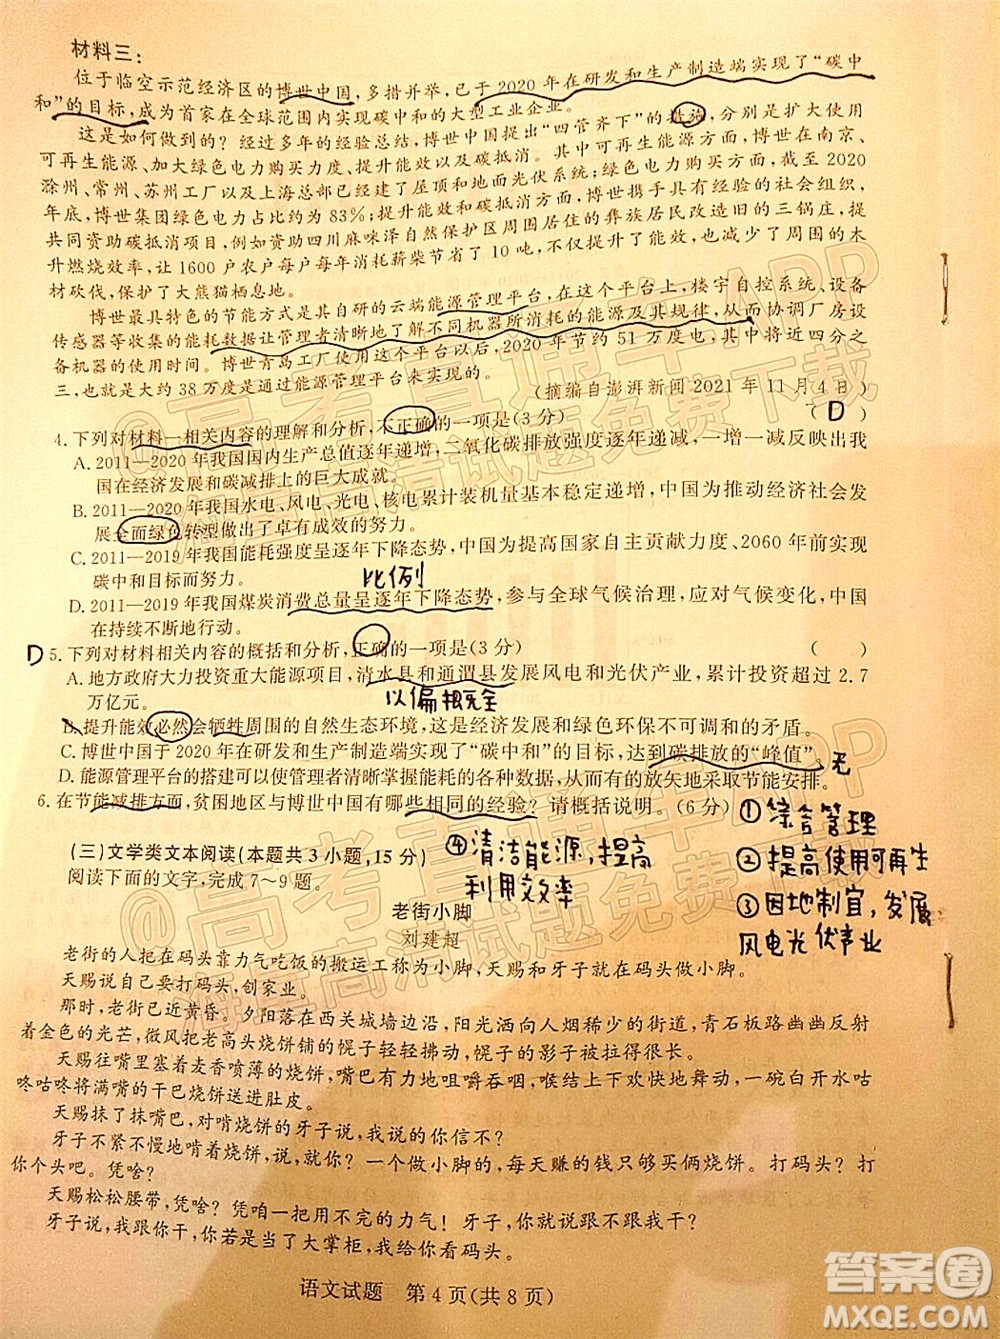 材料三：
位于临空示范经济区的博世中国，多措并举，已于2020年在研发和生产制造端实现了“碳中
和”的目标，成为首家在全球范围内实现碳中和的大型工业企业。
这是如何做到的？经过多年的经验总结，博世中国提出“四管齐下”的措施，分别是扩大使用
可再生能源、加大绿色电力购买力度、提升能效以及碳抵消。其中可再生能源方面，博世在南京、
滁州、常州、苏州工厂以及上海总部已经建了屋顶和地面光伏系统；绿色电力购买方面，截至2020
年底，博世集团绿色电力占比约为83％；提升能效和碳抵消方面，博世携手具有经验的社会组织，
共同资助碳抵消项目，例如资助四川麻咪泽自然保护区周围居住的彝族居民改造旧的三锅庄，提
升燃烧效率，让1600户农户每户每年消耗薪柴节省了10吨，不仅提升了能效，还减少了周围的木
材砍伐，保护了大熊猫栖息地。
博世最具特色的节能方式是其自研的云端能源管理平台，在这个平台上，楼宇自控系统、设备
传感器等收集的能耗数据让管理者清晰地了解不同机器所消耗的能源及其规律，从而协调厂房设
备机器的使用时间。博世青岛工厂使用这个平台以后，2020年节约51万度电，其中将近四分之
三，也就是大约38万度是通过能源管理平台来实现的。
（摘编自澎湃新闻2021年11月4日）
4.下列对材料一相关内容的理解和分析，不正确的一项是(3分)
（D）
A.2011—2020年我国国内生产总值逐年递增，二氧化碳排放强度逐年递减，一增一减反映出我
国在经济发展和碳减排上的巨大成就。
B.2011—2020年我国水电、风电、光电、核电累计装机量基本稳定递增，中国为推动经济社会发
展全面绿色转型做出了卓有成效的努力。
C.2011—2019年我国能耗强度呈逐年下降态势，中国为提高国家自主贡献力度、2060年前实现
碳中和目标而努力。
比例
D.2011-2019年我国煤炭消费总量呈逐年下降态势，参与全球气候治理，应对气候变化，中国
在持续不断地行动。
D 5.下列对材料相关内容的概括和分析，正确的一项是(3分)
（　）
A.地方政府大力投资重大能源项目，清水县和通渭县发展风电和光伏产业，累计投资超过2.7
万亿元。
以偏概全
B.提升能效必然会牺牲周围的自然生态环境，这是经济发展和绿色环保不可调和的矛盾。
C.博世中国于2020年在研发和生产制造端实现了“碳中和”的目标，达到碳排放的“峰值”。
无
D.能源管理平台的搭建可以使管理者清晰掌握能耗的各种数据，从而有的放矢地采取节能安排。
6.在节能减排方面，贫困地区与博世中国有哪些相同的经验？请概括说明。(6分)
①综合管理
②提高使用可再生
③因地制宜，发展
风电光伏产业
④清洁能源，提高
利用效率
(三)文学类文本阅读(本题共3小题，15分)
阅读下面的文字，完成7～9题。
老街小脚
刘建超
老街的人把在码头靠力气吃饭的搬运工称为小脚，天赐和牙子在码头做小脚。
天赐说自己要去打码头，创家业。
那时，老街已近黄昏。夕阳落在西关城墙边沿，阳光洒向人烟稀少的街道，青石板路幽幽反射
着金色的光芒，微风把老高头烧饼铺的幌子轻轻拂动，幌子的影子被拉得很长。
天赐往嘴里塞着麦香喷薄的烧饼，嘴巴有力地咀嚼吞咽，喉结上下欢快地舞动，一碗白开水咕
咚咕咚将满嘴的干巴烧饼送进肚皮。
天赐抹了抹嘴巴，对啃烧饼的牙子说，我说的你信不？
牙子不紧不慢地啃着烧饼，一个做小脚的人，每天赚的钱只够买俩烧饼。打码头？打
你个头吧。凭啥？
天赐松松腰带，凭啥？凭咱一把用不完的力气！牙子，你跟我干不？
牙子说，我跟你干。你若是当了大掌柜，我给你看码头。
语文试题　第4页(共8页)
@高考直通车APP
海量高清试题免费下载
答案圈
MXQE.COM